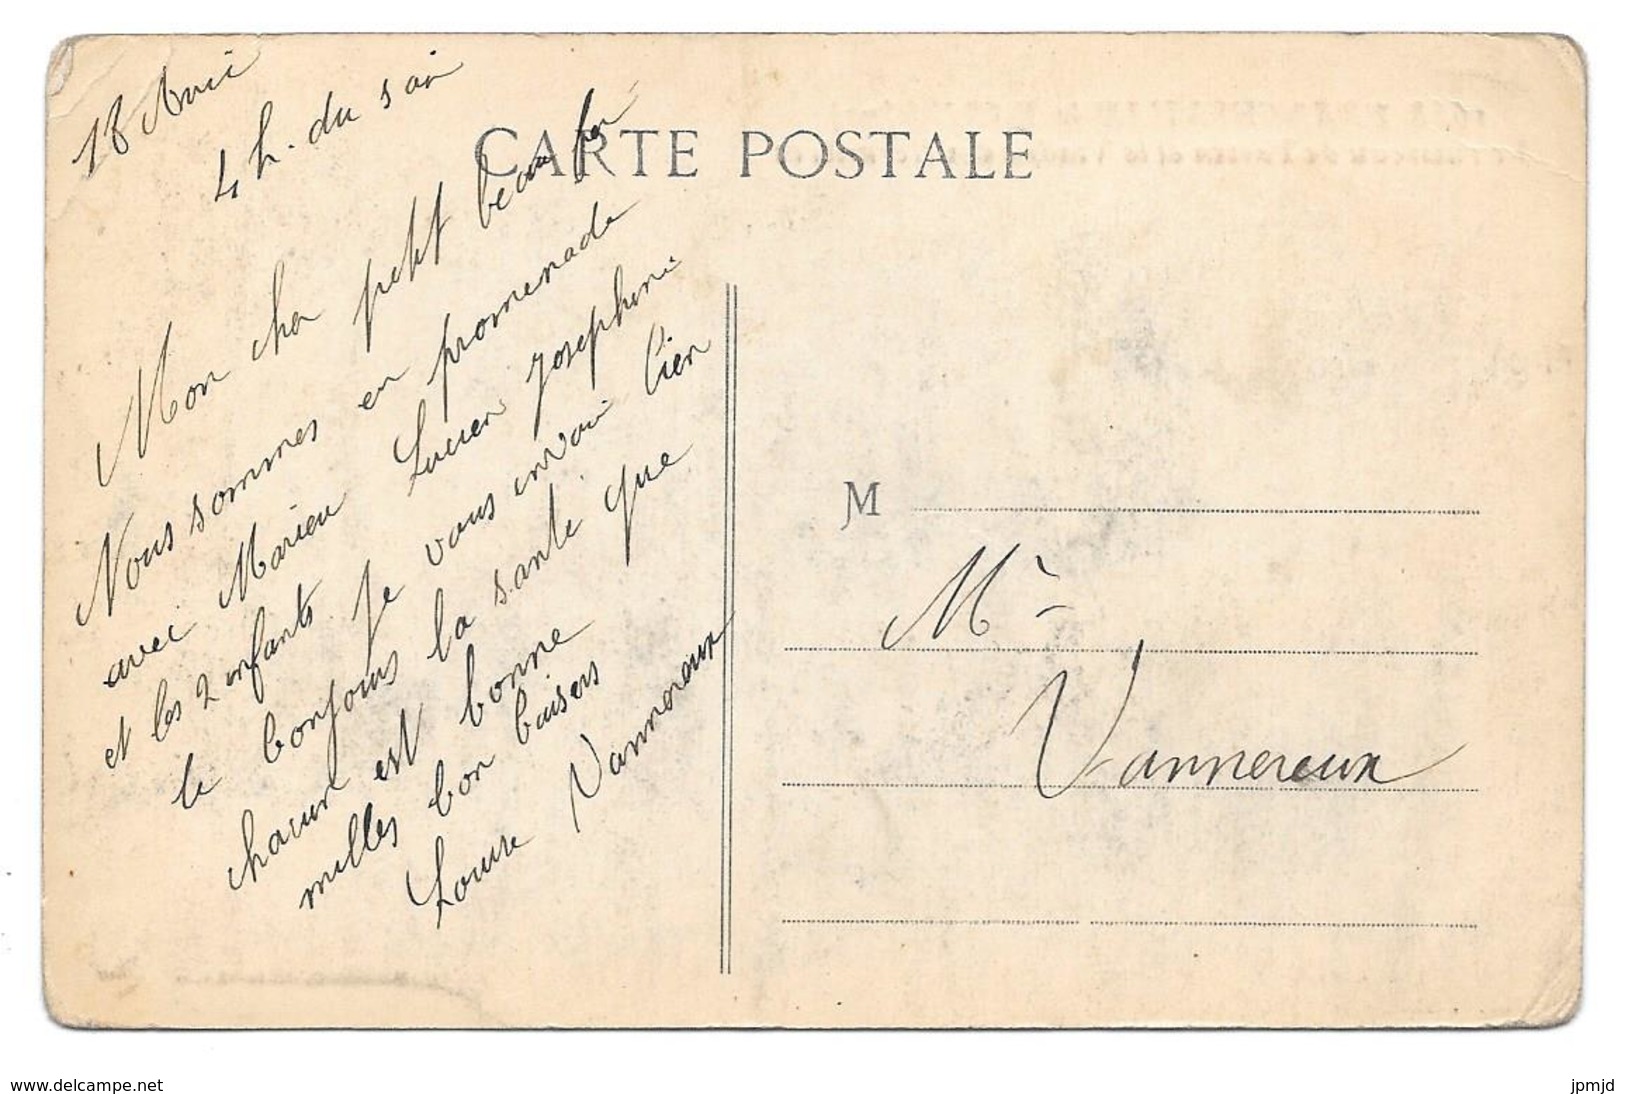 18 Avril
4 h. du soir
CARTE POSTALE
Mon cher petit beau
Nous sommes en promenade
avec Marieu Lucien Josephine
et les 2 enfants. Je vous envoie bien
le bonjours la sante que
chacun est bonne
milles bon baisers
Louise Vannereux
M
Mr
Vannereux
www.delcampe.net
jpmjd